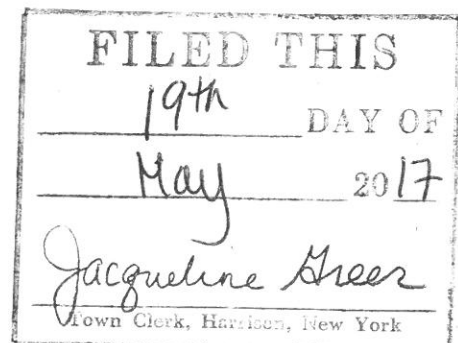 FILED THIS
19th DAY OF
May 2017
Jacqueline Greer
Town Clerk, Harrison, New York